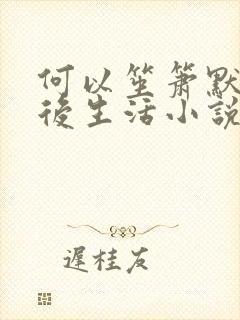 何以笙箫默
後生活小説
遲桂友